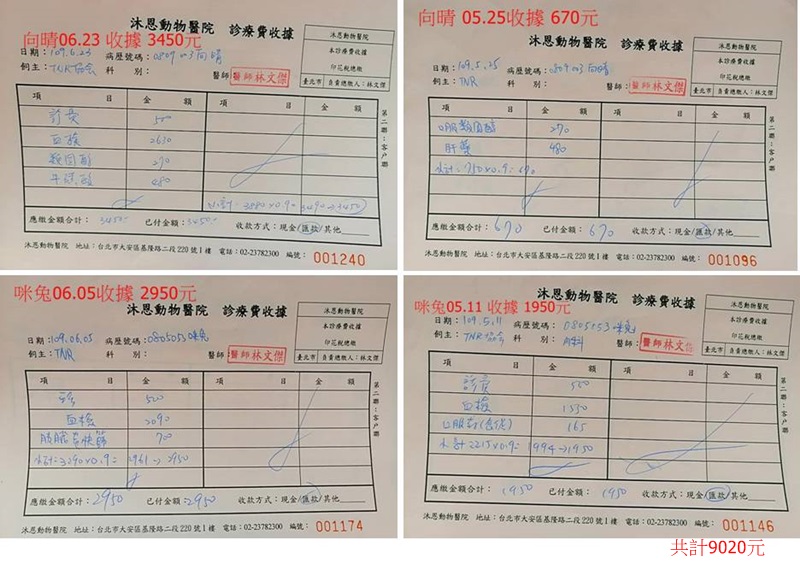 向晴06.23 收據 3450元
沐恩動物醫院 診療費收據
沐恩動物醫院
本診療費收據
印花稅總繳
臺北市 自責總繳人：林文傑
日期：109.6.23 病歷號碼：0809003向晴
飼主：TNR協會 科 別： 醫師：醫師林文傑
項 目 金 額 項 目 金 額
診費 500
血檢 2630
類固醇 270
牛磺酸 480
小計=3880x0.9=3490→3450
第二聯：客戶聯
應繳金額合計：3450 已付金額：3450 收款方式：現金/匯款/其他
沐恩動物醫院 地址：台北市大安區基隆路二段220號1樓 電話：02-23782300 編號： 001240
向晴 05.25收據 670元
沐恩動物醫院 診療費收據
沐恩動物醫院
本診療費收據
印花稅總繳
臺北市 自責總繳人：林文傑
日期：109.5.25 病歷號碼：0809003向晴
飼主：TNR 科 別： 醫師：醫師林文傑
項 目 金 額 項 目 金 額
口服類固醇 270
肝藥 480
小計=750x0.9=670
第二聯：客戶聯
應繳金額合計：670 已付金額：670 收款方式：現金/匯款/其他
沐恩動物醫院 地址：台北市大安區基隆路二段220號1樓 電話：02-23782300 編號： 001096
咪兔06.05收據 2950元
沐恩動物醫院 診療費收據
沐恩動物醫院
本診療費收據
印花稅總繳
臺北市 自責總繳人：林文傑
日期：109.06.05 病歷號碼：0805053咪兔
飼主：TNR 科 別： 醫師：醫師林文傑
項 目 金 額 項 目 金 額
500
血檢 2090
胰臟炎快篩 700
小計=3290x0.9=2961→2950
第二聯：客戶聯
應繳金額合計：2950 已付金額：2950 收款方式：現金/匯款/其他
沐恩動物醫院 地址：台北市大安區基隆路二段220號1樓 電話：02-23782300 編號： 001174
咪兔05.11 收據 1950元
沐恩動物醫院 診療費收據
沐恩動物醫院
本診療費收據
印花稅總繳
臺北市 自責總繳人：林文傑
日期：109.5.11 病歷號碼：0805053咪兔
飼主：TNR協會 科 別：內科 醫師：醫師林文傑
項 目 金 額 項 目 金 額
診費 500
血檢 1550
165
小計2215x0.9=1994→1950
第二聯：客戶聯
應繳金額合計：1950 已付金額：1950 收款方式：現金/匯款/其他
沐恩動物醫院 地址：台北市大安區基隆路二段220號1樓 電話：02-23782300 編號： 001146
共計9020元